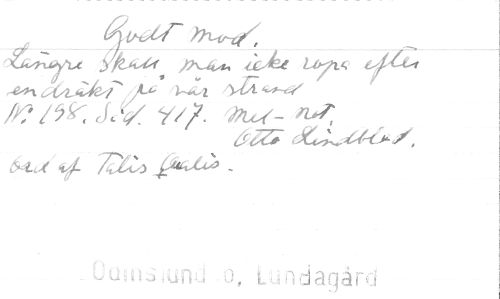 Godt mod.
Längre skall man icke ropa efter
endräkt på vår strand
No: 198. Sid. 417. Mel-not.
Otto Lindblad.
Ord af Talis Qualis.
o, Lundagård